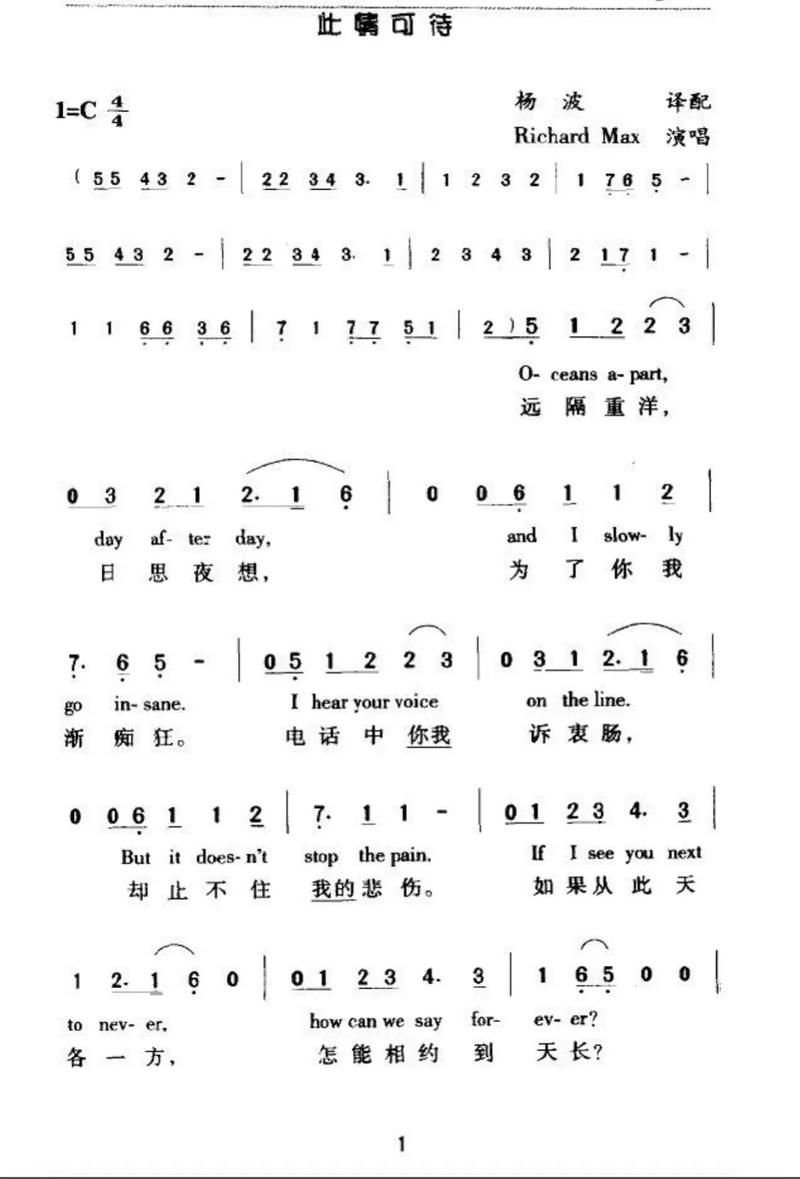 此情可待
1=C 4/4
杨波 译配
Richard Max 演唱
( 55 43 2 - | 22 34 3. 1 | 1 2 3 2 | 1 76 5 - |
55 43 2 - | 22 34 3. 1 | 2 3 4 3 | 2 17 1 - |
1 1 66 36 | 7 1 77 51 | 2 ) 5 1 2 2 3 |
O- ceans a- part,
远 隔 重 洋,
0 3 2 1 2. 1 6 | 0 0 6 1 1 2 |
day af- ter day, and I slow- ly
日 思 夜 想, 为 了 你 我
7. 6 5 - | 0 5 1 2 2 3 | 0 3 1 2. 1 6 |
go in- sane. I hear your voice on the line.
渐 痴 狂。 电 话 中 你我 诉 衷 肠,
0 0 6 1 1 2 | 7. 1 1 - | 0 1 2 3 4. 3 |
But it does- n't stop the pain. If I see you next
却 止 不 住 我的 悲 伤。 如 果 从 此 天
1 2. 1 6 0 | 0 1 2 3 4. 3 | 1 6 5 0 0 |
to nev- er, how can we say for- ev- er?
各 一 方, 怎 能 相 约 到 天 长?
1